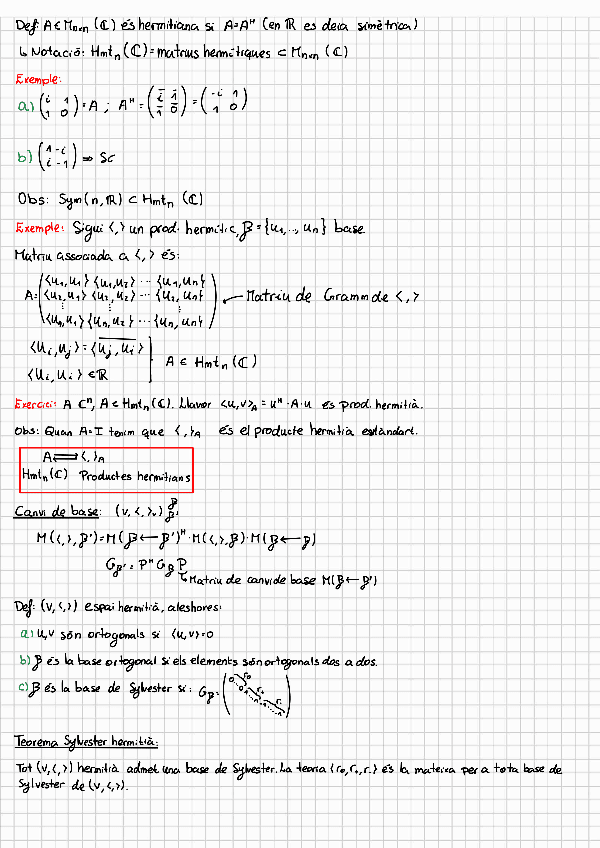 Def: A∈Mn×n (ℂ) és hermitiana si A=Aᴴ (en ℝ es deia simètrica)
↳ Notació: Hmtn(ℂ)=matrius hermítiques ⊂ Mn×n (ℂ)
Exemple:
a) (i 1 / 1 0) = A ; Aᴴ = (i̅ 1̅ / 1̅ 0̅) = (-i 1 / 1 0)
b) (1 -i / i -1) ⇒ Sí
Obs: Sym(n,ℝ) ⊂ Hmtn (ℂ)
Exemple: Sigui ⟨,⟩ un prod. hermític, β={u1,..., un} base.
Matriu associada a ⟨,⟩ és:
A= (⟨u1,u1⟩ ⟨u1,u2⟩ ... ⟨u1,un⟩
⟨u2,u1⟩ ⟨u2,u2⟩ ... ⟨u2,un⟩
⋮ ⋮ ⋮
⟨un,u1⟩ ⟨un,u2⟩ ... ⟨un,un⟩) ← Matriu de Gramm de ⟨,⟩
⟨ui,uj⟩ = \overline{⟨uj,ui⟩}
⟨ui,ui⟩ ∈ℝ | A ∈ Hmtn(ℂ)
Exercici: A ℂⁿ, A∈Hmtn(ℂ). Llavor ⟨u,v⟩A = uᴴ·A·u és prod. hermitià.
Obs: Quan A=I tenim que ⟨,⟩A és el producte hermitià estàndart.
A ⇄ ⟨,⟩A
Hmtn(ℂ) Productes hermitians
Canvi de base: (v,⟨,⟩v) β β'
M(⟨,⟩,β')=M(β←β')ᴴ·M(⟨,⟩,β)·M(β←β)
Gβ' = Pᴴ Gβ P
↳ Matriu de canvi de base M(β←β')
Def: (v,⟨,⟩) espai hermitià, aleshores:
a) u,v són ortogonals si ⟨u,v⟩=0
b) β és la base ortogonal si els elements són ortogonals dos a dos.
c) β és la base de Sylvester si: Gβ=
Teorema Sylvester hermitià:
Tot (v,⟨,⟩) hermitià admet una base de Sylvester. La teoria (r0,r+,r-) és la mateixa per a tota base de
Sylvester de (v,⟨,⟩).